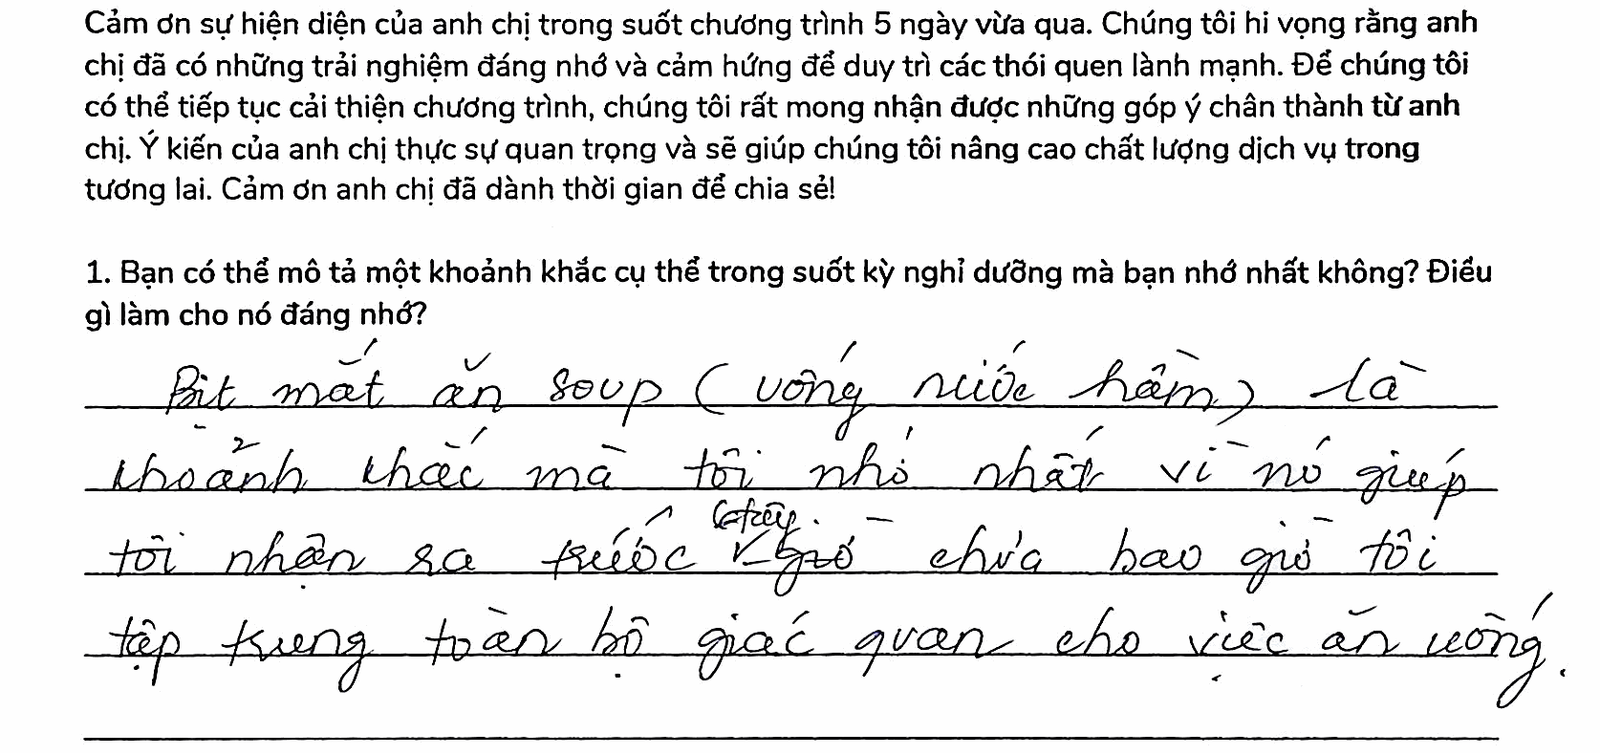 Cảm ơn sự hiện diện của anh chị trong suốt chương trình 5 ngày vừa qua. Chúng tôi hi vọng rằng anh
chị đã có những trải nghiệm đáng nhớ và cảm hứng để duy trì các thói quen lành mạnh. Để chúng tôi
có thể tiếp tục cải thiện chương trình, chúng tôi rất mong nhận được những góp ý chân thành từ anh
chị. Ý kiến của anh chị thực sự quan trọng và sẽ giúp chúng tôi nâng cao chất lượng dịch vụ trong
tương lai. Cảm ơn anh chị đã dành thời gian để chia sẻ!
1. Bạn có thể mô tả một khoảnh khắc cụ thể trong suốt kỳ nghỉ dưỡng mà bạn nhớ nhất không? Điều
gì làm cho nó đáng nhớ?
Bịt mắt ăn soup (uống nước hầm) là
khoảnh khắc mà tôi nhớ nhất vì nó giúp
tôi nhận ra trước đây giờ chưa bao giờ tôi
tập trung toàn bộ giác quan cho việc ăn uống.